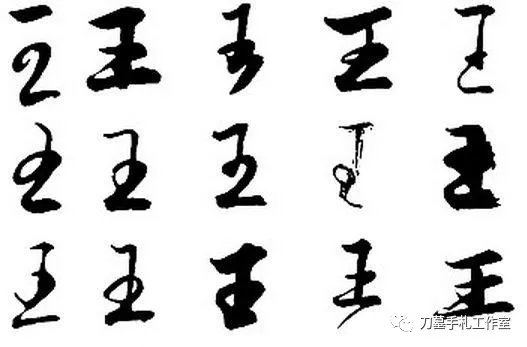 王 王 王 王 王
王 王 王 王 王
王 王 王 王 王
刀墓手札工作室